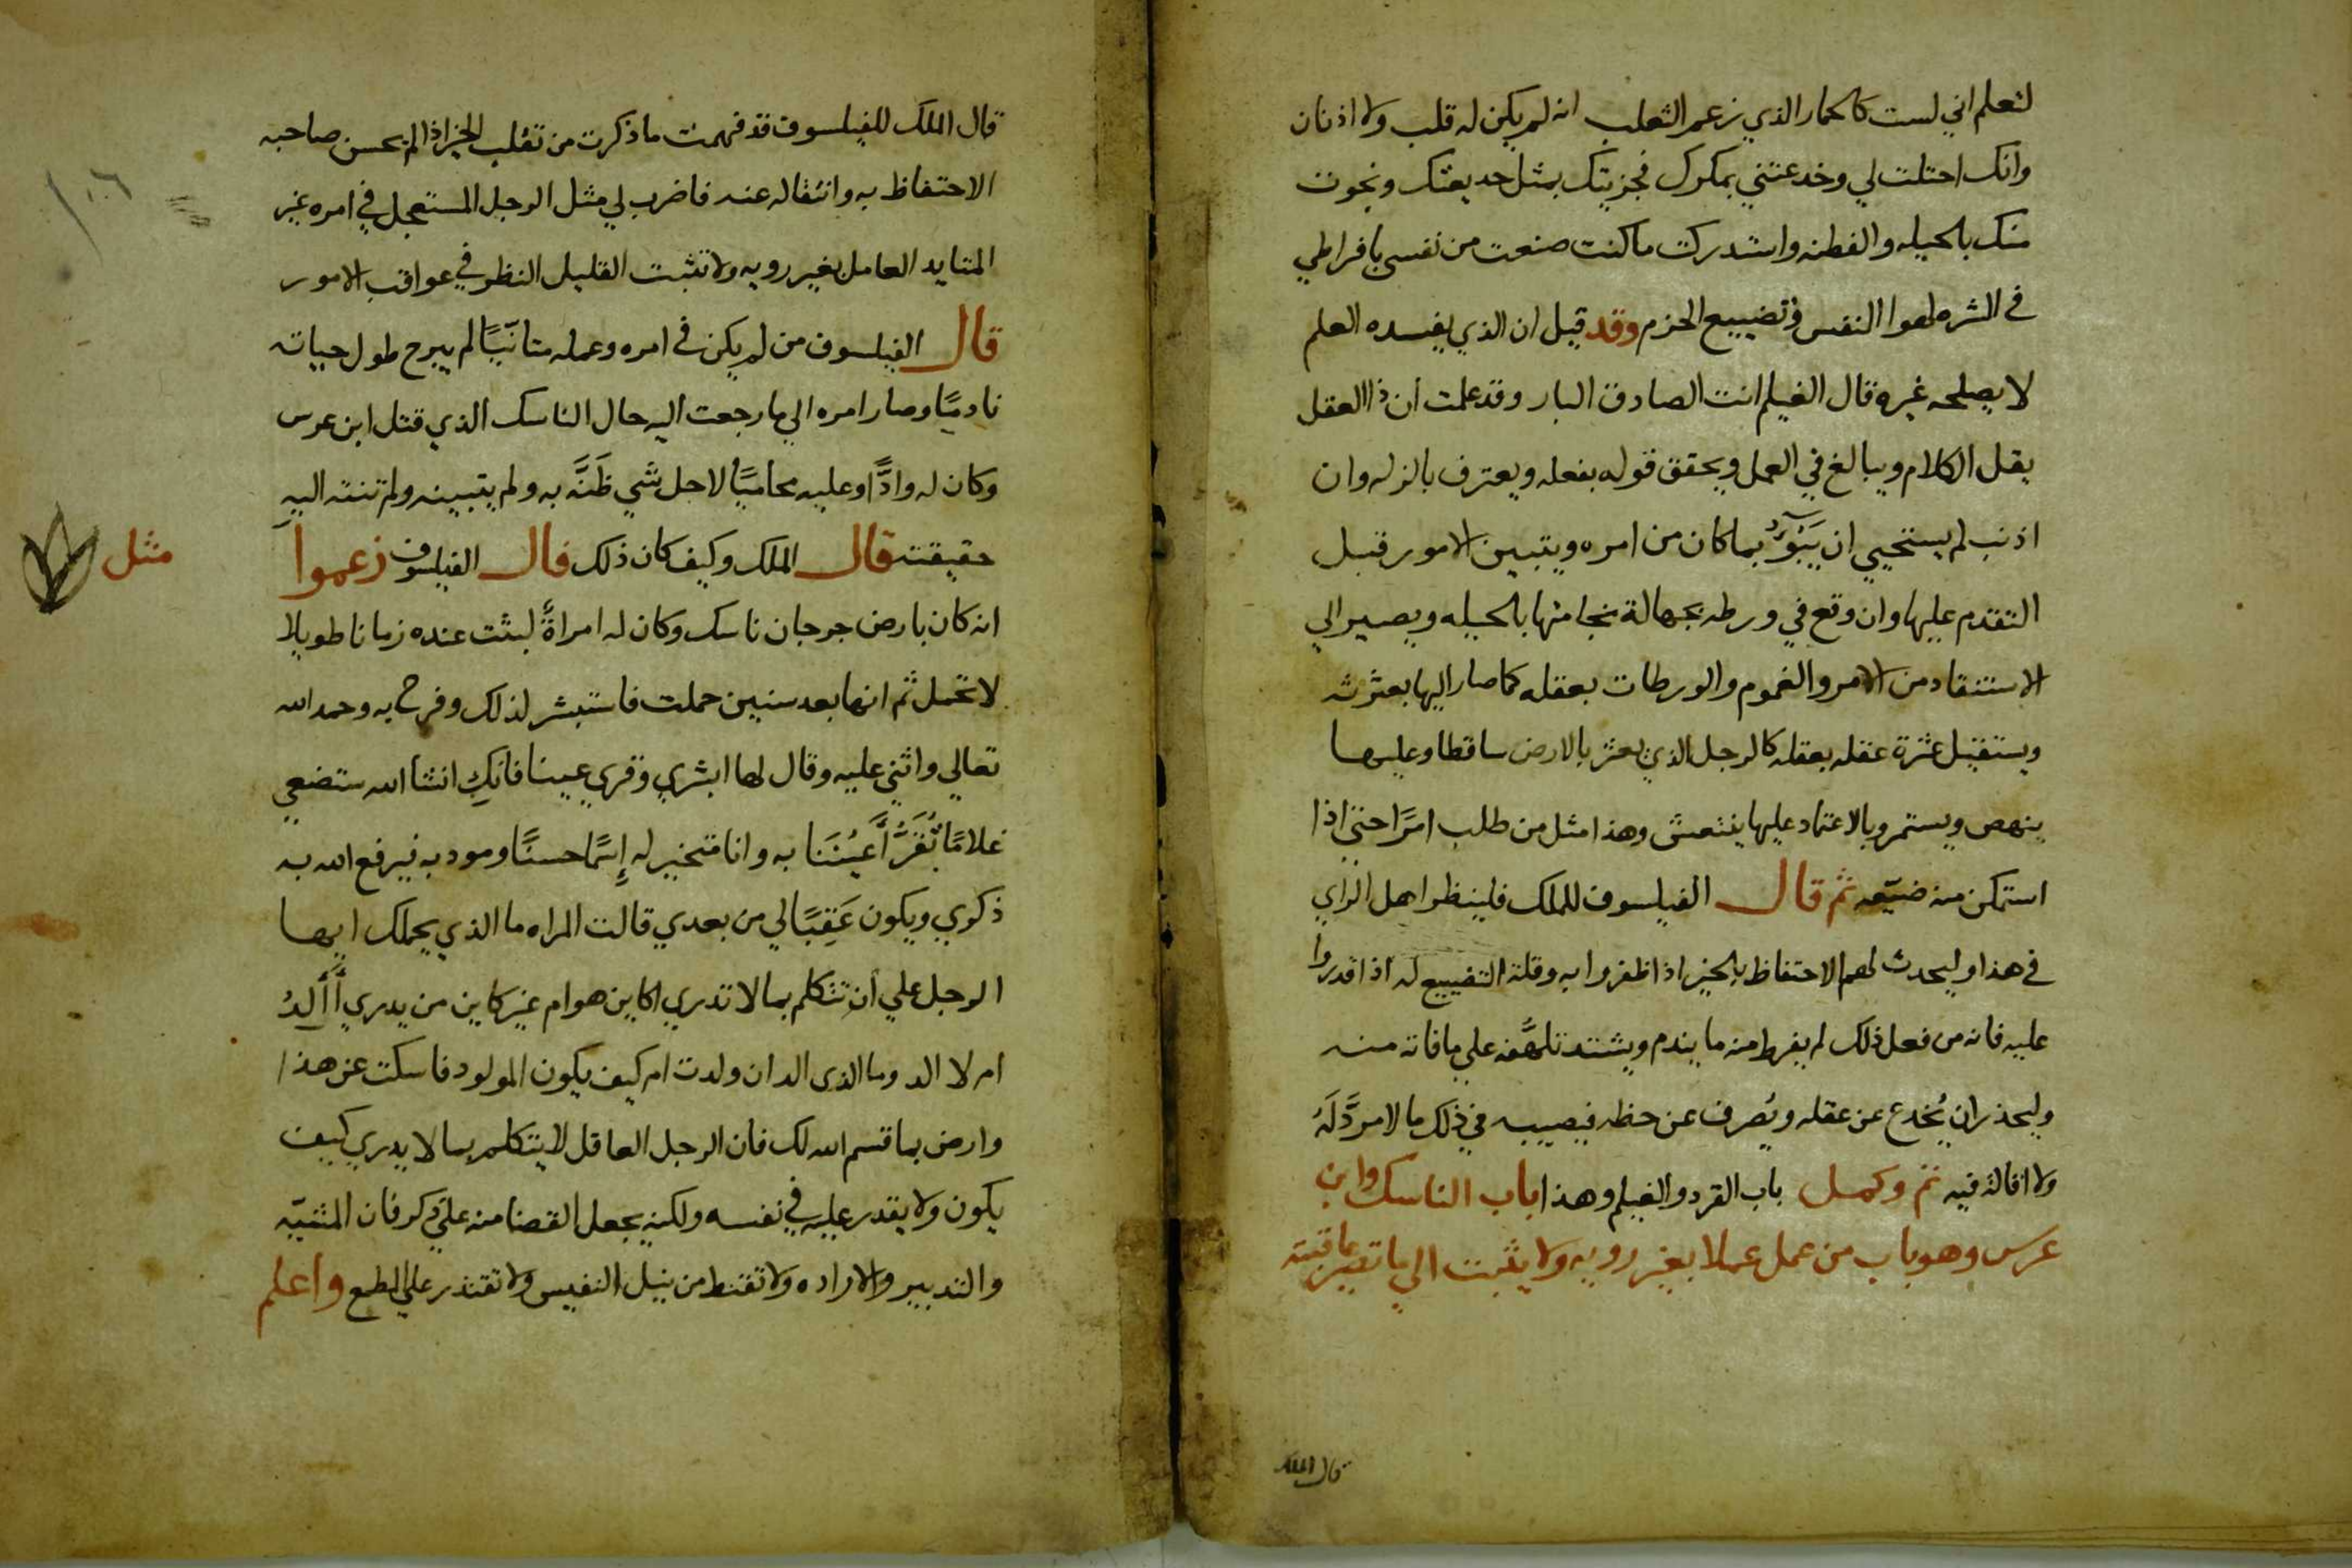 لتعلم اني لست كالحمار الذي زعم الثعلب انه لم يكن له قلب ولا اذنان
وانك احتلت لي وخدعتني بمكرك فجزيتك بمثل خديعتك ونجوت
منك بالحيله والفطنه واستدركت ما كنت صنعت من نفسي بافراطي
في الشره لهوا النفس وتضييع الحزم وقد قيل ان الذي يفسده العلم
لا يصلحه غيره قال الغيلم انت الصادق البار وقد علمت ان ذا العقل
يقل الكلام ويبالغ في العمل ويحقق قوله بفعله ويعترف بالزله وان
اذنب لم يستحيي ان يَبُوؤُ بما كان من امره ويتبين الامور قبل
التقدم عليها وان وقع في ورطه بجهالة نجا منها بالحيله ويصير الي
الاستنقاد من الامر والغموم والورطات بعقله كما صار اليها بعثرته
ويستقيل عثرة عقله بعقله كالرجل الذي يعثر بالارض ساقطا وعليها
ينهض ويستمر وبالاعتماد عليها ينتعش وهذا مثل من طلب امرًا حتى اذا
استمكن منه ضيّعه ثم قال الفيلسوف للملك فلينظر اهل الراي
في هذا وليحدث لهم الاحتفاظ بالخير اذا ظفروا به وقلة التضييع له اذا قدروا
عليه فانه من فعل ذلك لم يفرط منه ما يندم ويشتد تلهُّفه علي ما فاته منه
وليحذر ان يُخدع عن عقله ويُصرف عن حظه فيصيبه في ذلك ما لا مردَّ لهُ
ولا اقالة فيه تم وكمل باب القرد والغيلم وهذا باب الناسك وابن
عرس وهو باب من عمل عملا بغير رويه ولا يثبت الي ما تصير عاقبته
قال الملك
قال الملك للفيلسوف قد فهمت ما ذكرت من تقلب الخير اذا لم يحسن صاحبه
الاحتفاظ به وانتقاله عنه فاضرب لي مثل الرجل المستعجل في امره غير
المتايد العامل بغير رويه ولا تثبت القليل النظر في عواقب الامور
قال الفيلسوف من لم يكن في امره وعمله متانّيًا لم يبرح طول حياته
نادمًا وصار امره الي ما رجعت اليه حال الناسك الذي قتل ابن عرس
وكان له وادًّا وعليه محاميًا لاجل شي ظَنَّه به ولم يتبينه ولم تنته اليه
حقيقته قال الملك وكيف كان ذلك قال الفيلسوف زعموا
مثل
انه كان بارض جرجان ناسك وكان له امراةً لبثت عنده زمانا طويلا
لا تحمل ثم انها بعد سنين حملت فاستبشر لذلك وفرح به وحمد الله
تعالي واثني عليه وقال لها ابشري وقري عينا فانكِ انشا الله ستضعي
غلامًا تُقَرُّ أَعيُنَنا به وانا متخير له إسمًا حسنًا ومودبه فيرفع الله به
ذكري ويكون عَقِبًا لي من بعدي قالت المراه ما الذي يحملك ايها
الرجل علي أن تتكلم بما لا تدري اكاين هو ام غير كاين من يدري أَأَلِدُ
ام لا الد وما الذى الد ان ولدت ام كيف يكون المولود فاسكت عن هذا
وارض بما قسم الله لك فان الرجل العاقل لا يتكلم بما لا يدري كيف
يكون ولا يقدر عليه في نفسه ولكنه يجعل القضا منه علي ذكر فان المشيّه
والتدبير والاراده ولا تقنط من نيل النفيس ولا تقتدر علي الطمع واعلم
١٠٦